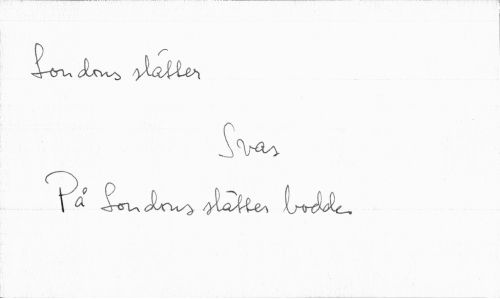 Londons slätter
Svas
På Londons slätter bodde